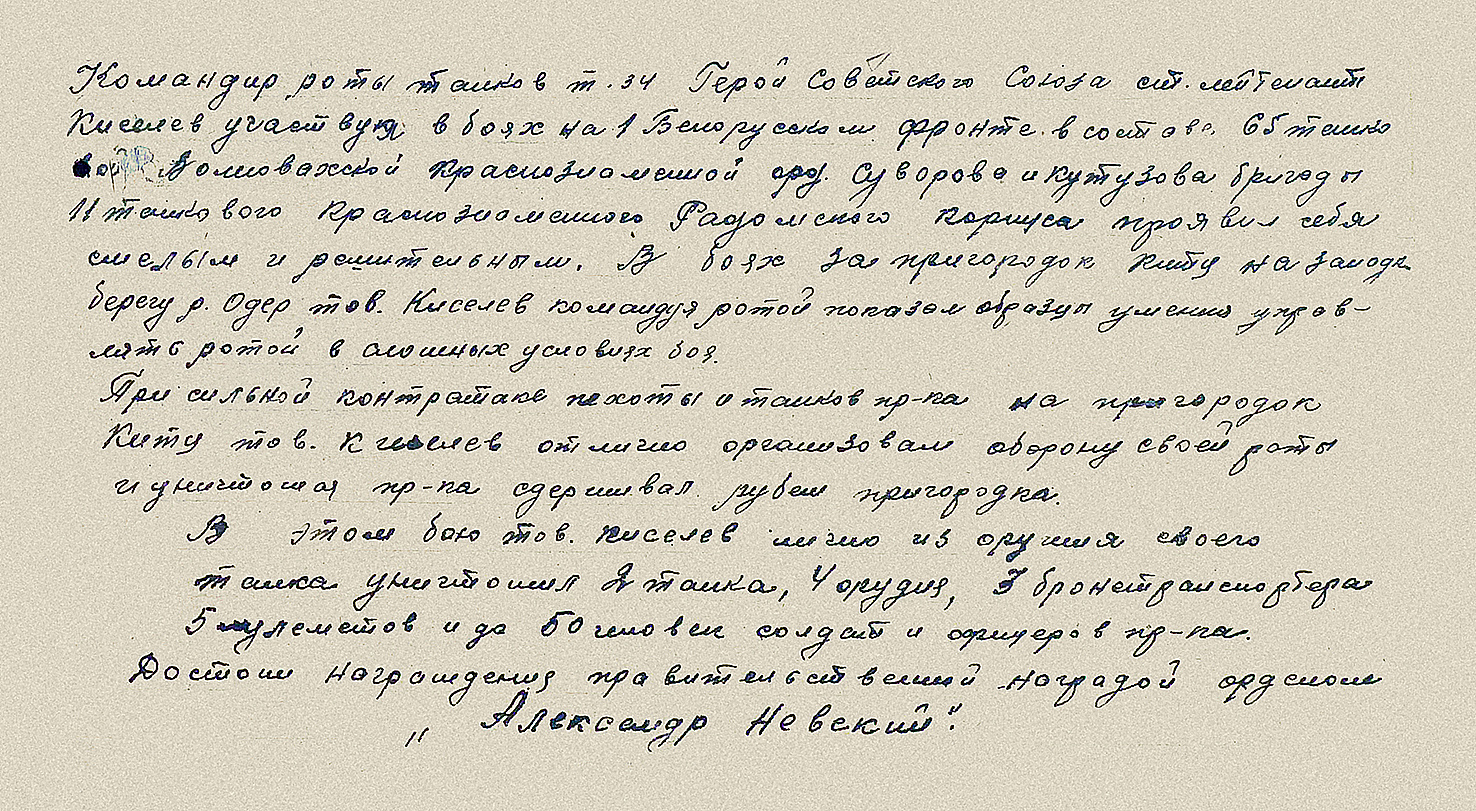 Командир роты танков т.34 Герой Советского Союза ст. лейтенант
Киселев участвуя в боях на 1 Белорусском фронте в составе 65 танко
вой Волновахской Краснознаменной орд. Суворова и Кутузова бригады
11 танкового Краснознаменного Радомского корпуса проявил себя
смелым и решительным. В боях за пригородок Китц на западн
берегу р. Одер тов. Киселев командуя ротой показал образцы умения управ-
лять ротой в сложных условиях боя.
При сильной контратаке пехоты и танков пр-ка на пригородок
Китц тов. Киселев отлично организовал оборону своей роты
и уничтожая пр-ка сдерживал рубеж пригородка.
В этом бою тов. Киселев лично из оружия своего
танка уничтожил 2 танка, 4 орудия, 3 бронетранспортера
5 пулеметов и до 50 человек солдат и офицеров пр-ка.
Достоин награждения правительственной наградой орденом
„Александр Невский".